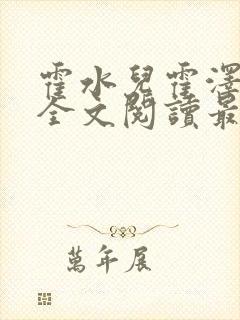 霍水兒霍澤
全文閱讀最
萬年展